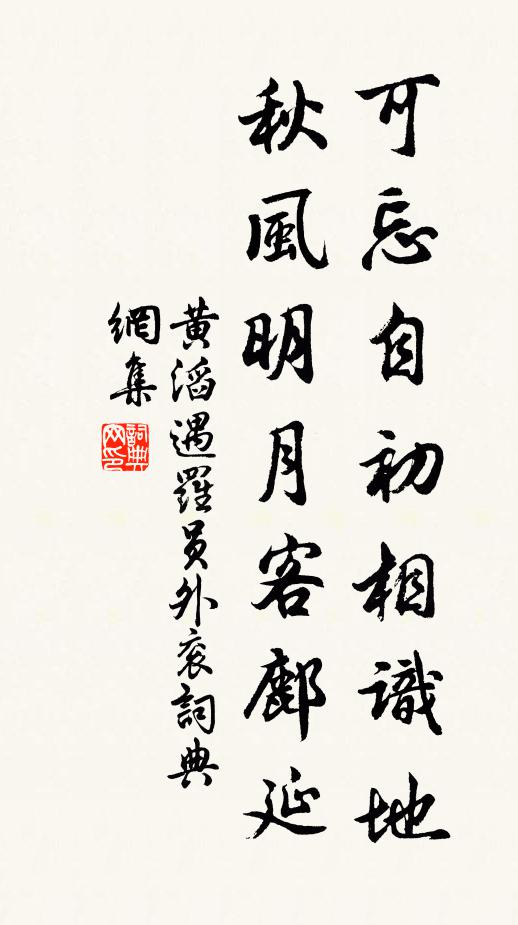 可忘自初相識地
秋風明月客鄜延
黃滔遇羅員外袞詞典
網集
詞典
网印